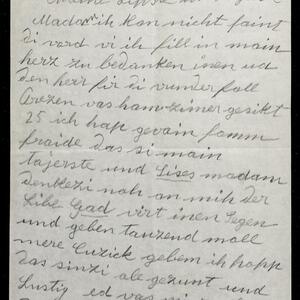 Madam ih kan nicht faint
di vord vi ih fill in main
herz zu bedanken inen ud
den herr fir di vunder foll
vas ham zimer gesikt
25 ich hap gevain fomm
fraide das si main
tajerste und Lises madam
denkezi noh an mih der
Libe Gad virt inen Segen
und geben tauzend moll
mere Cuzick gebem ih hopp
das sinzi ale gezunt und
Lustig ed vas